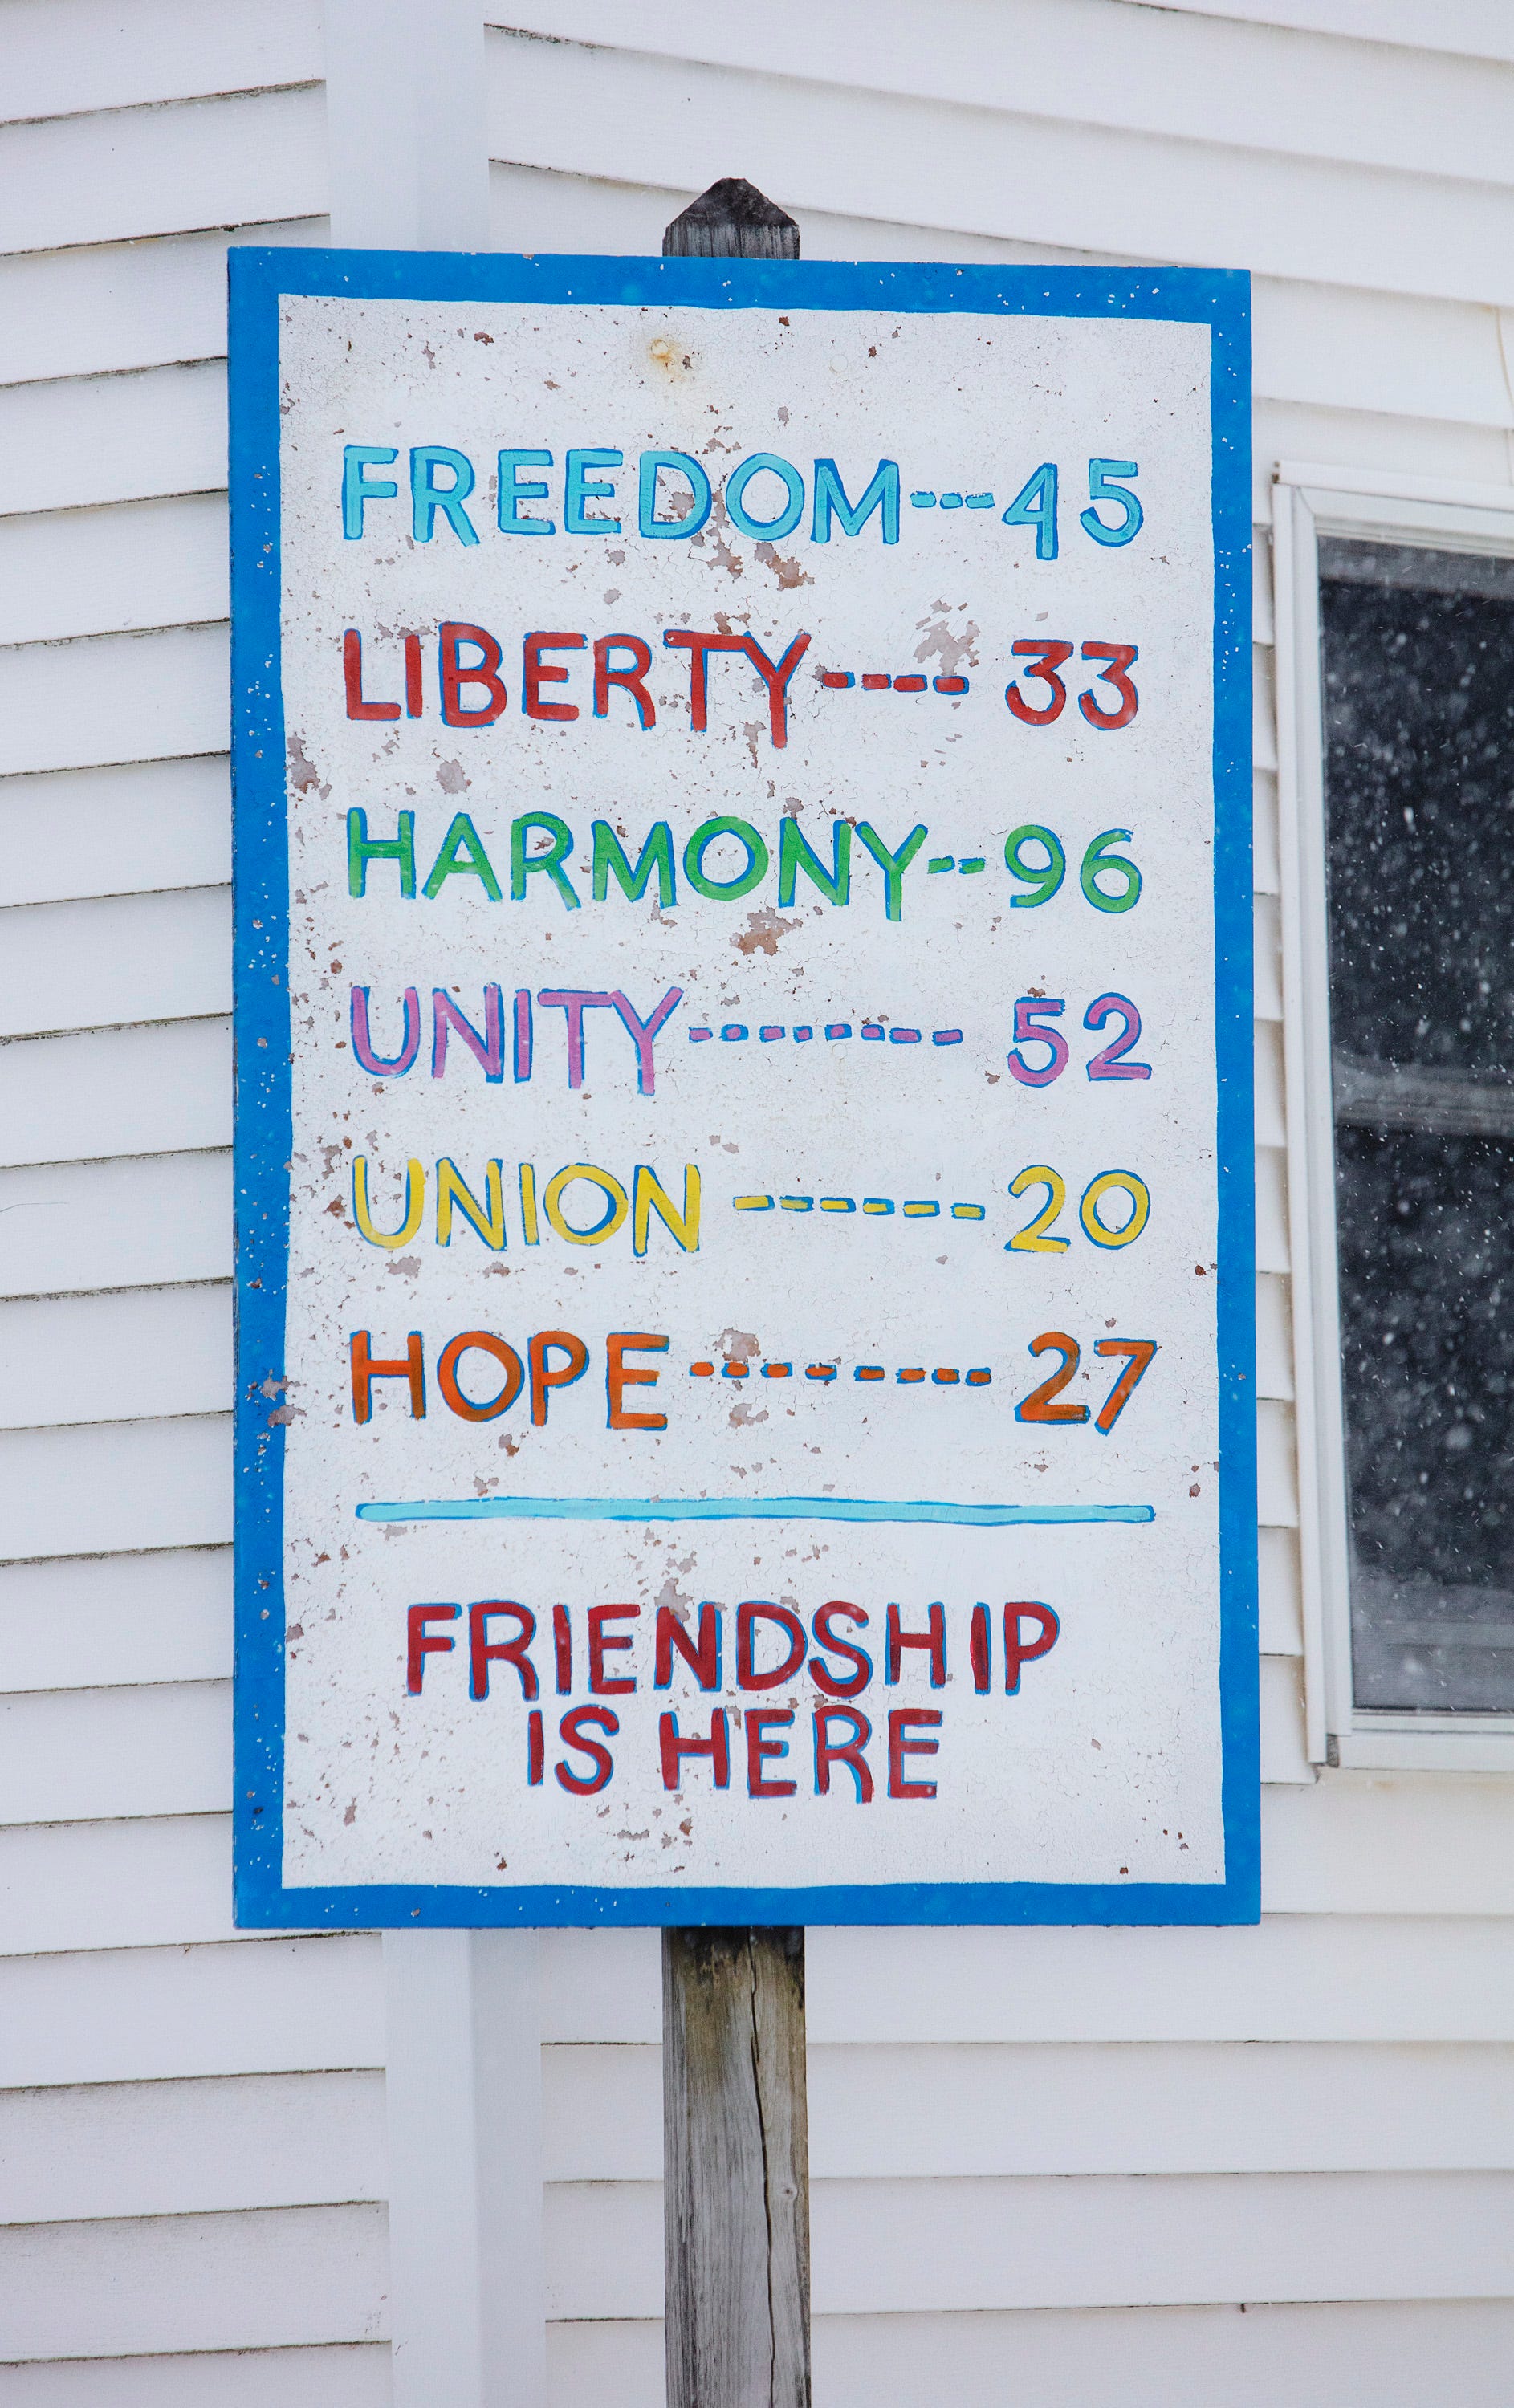 FREEDOM---45
LIBERTY---- 33
HARMONY--96
UNITY-------- 52
UNION ------ 20
HOPE-------- 27
FRIENDSHIP
IS HERE